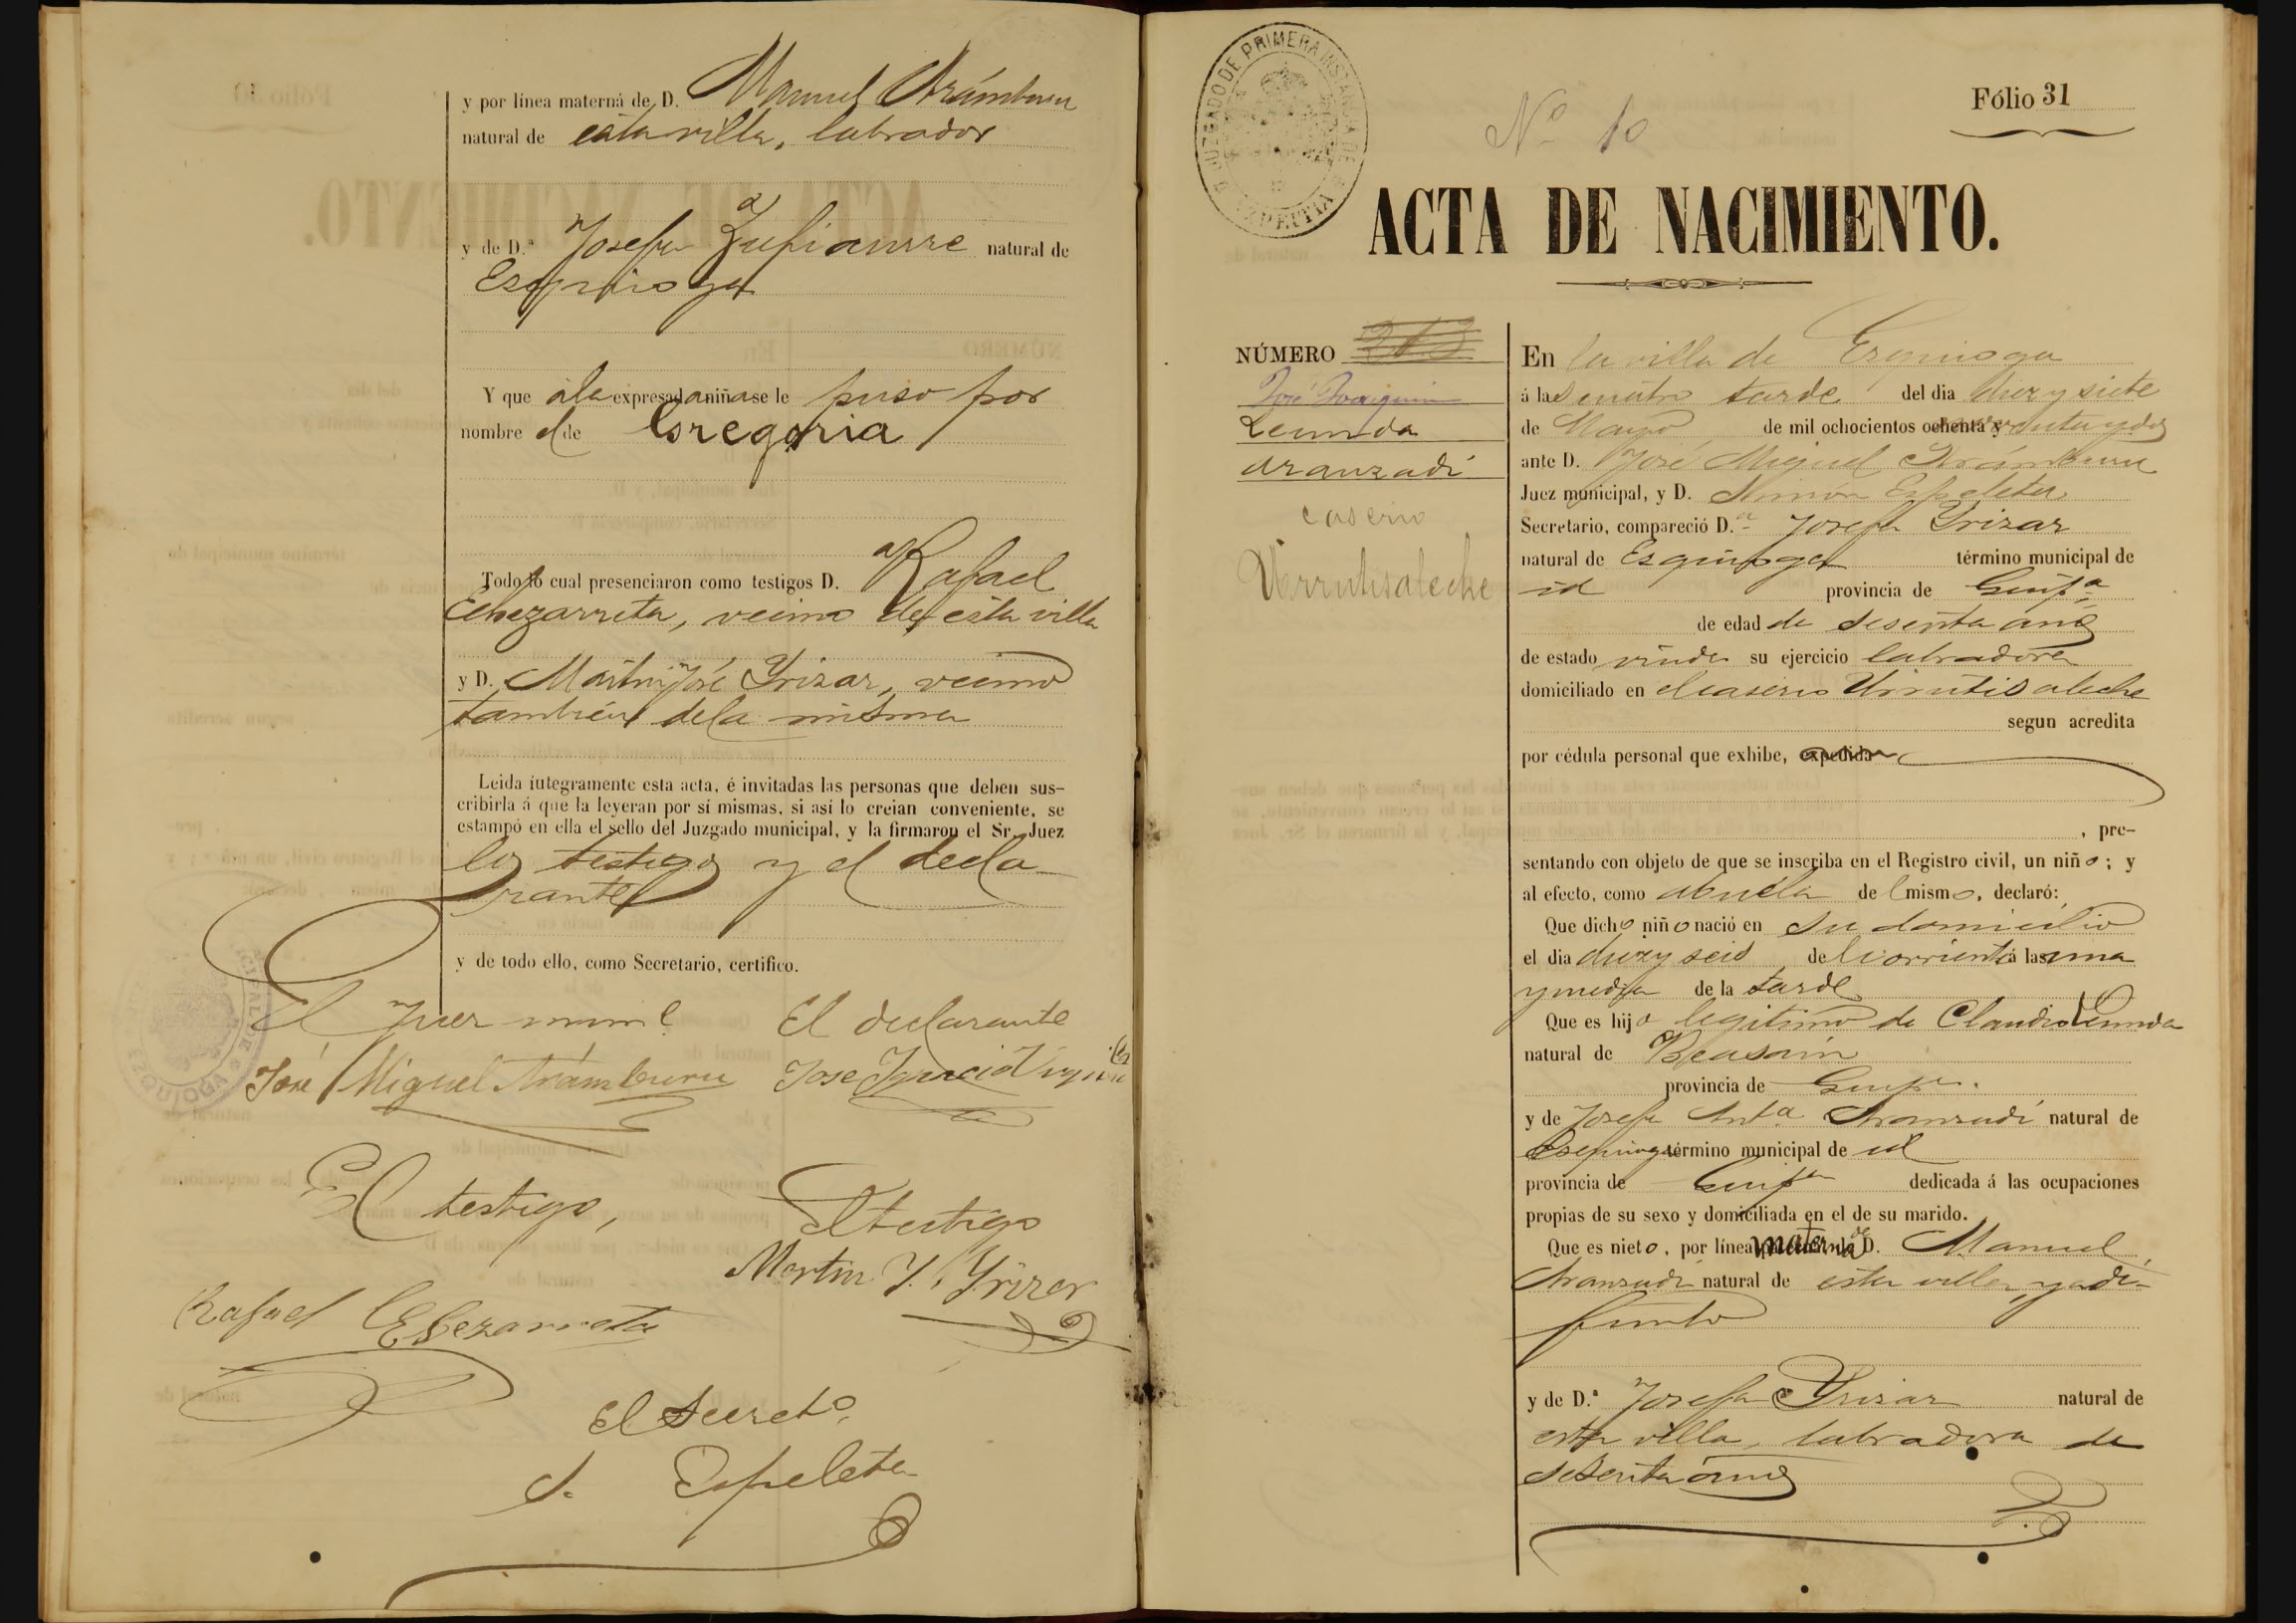 y por línea materna de D. Manuel Arámburu
natural de esta villa, labrador
y de D.ª Josefa Zufiaurre natural de
Ezquioga
Y que á la expresada niña se le puso por
nombre el de Gregoria
Todo lo cual presenciaron como testigos D. Rafael
Echezarreta, vecino de esta villa
y D. Martin José Yrizar, vecino
tambien de la misma
Leida integramente esta acta, é invitadas las personas que deben sus-
cribirla á que la leyeran por sí mismas, si así lo creian conveniente, se
estampó en ella el sello del Juzgado municipal, y la firmaron el Sr. Juez
los testigos y el decla
rante
y de todo ello, como Secretario, certifico.
El Juez munl El declarante
José Miguel Arámburu Jose Ygnacio
El testigo, El testigo
Martin J. Yrizar
Rafael Echezarreta
El Secretº,
S. Espeleta
JUZGADO DE PRIMERA INSTANCIA DE AZPEITIA
Nº 10
Fólio 31
ACTA DE NACIMIENTO.
NÚMERO 213
José Joaquin
Leunda
Aranzadi
caserio
Urrutisaleche
En la villa de Ezquioga
á las cuatro tarde del dia diez y siete
de Mayo de mil ochocientos ochenta y noventa y dos
ante D. José Miguel Arámburu
Juez municipal, y D. Simón Espeleta
Secretario, compareció D.ª Josefa Yrizar
natural de Ezquioga término municipal de
id provincia de Guipª
de edad de sesenta años
de estado viuda su ejercicio labradora
domiciliado en el caserio Urrutisaleche
segun acredita
por cédula personal que exhibe, expedida
, pre-
sentando con objeto de que se inscriba en el Registro civil, un niño; y
al efecto, como abuela del mismo, declaró:
Que dicho niño nació en su domicilio
el dia diez y seis del corriente á las una
y media de la tarde
Que es hijo legitimo de Claudio Leunda
natural de Beasain
provincia de Guipª.
y de Josefa Antª Aranzadi natural de
Ezquioga término municipal de id
provincia de Guipª dedicada á las ocupaciones
propias de su sexo y domiciliada en el de su marido.
Que es nieto, por línea materna de D. Manuel
Aranzadi natural de esta villa, ya di-
funto
y de D.ª Josefa Yrizar natural de
esta villa, labradora de
sesenta años